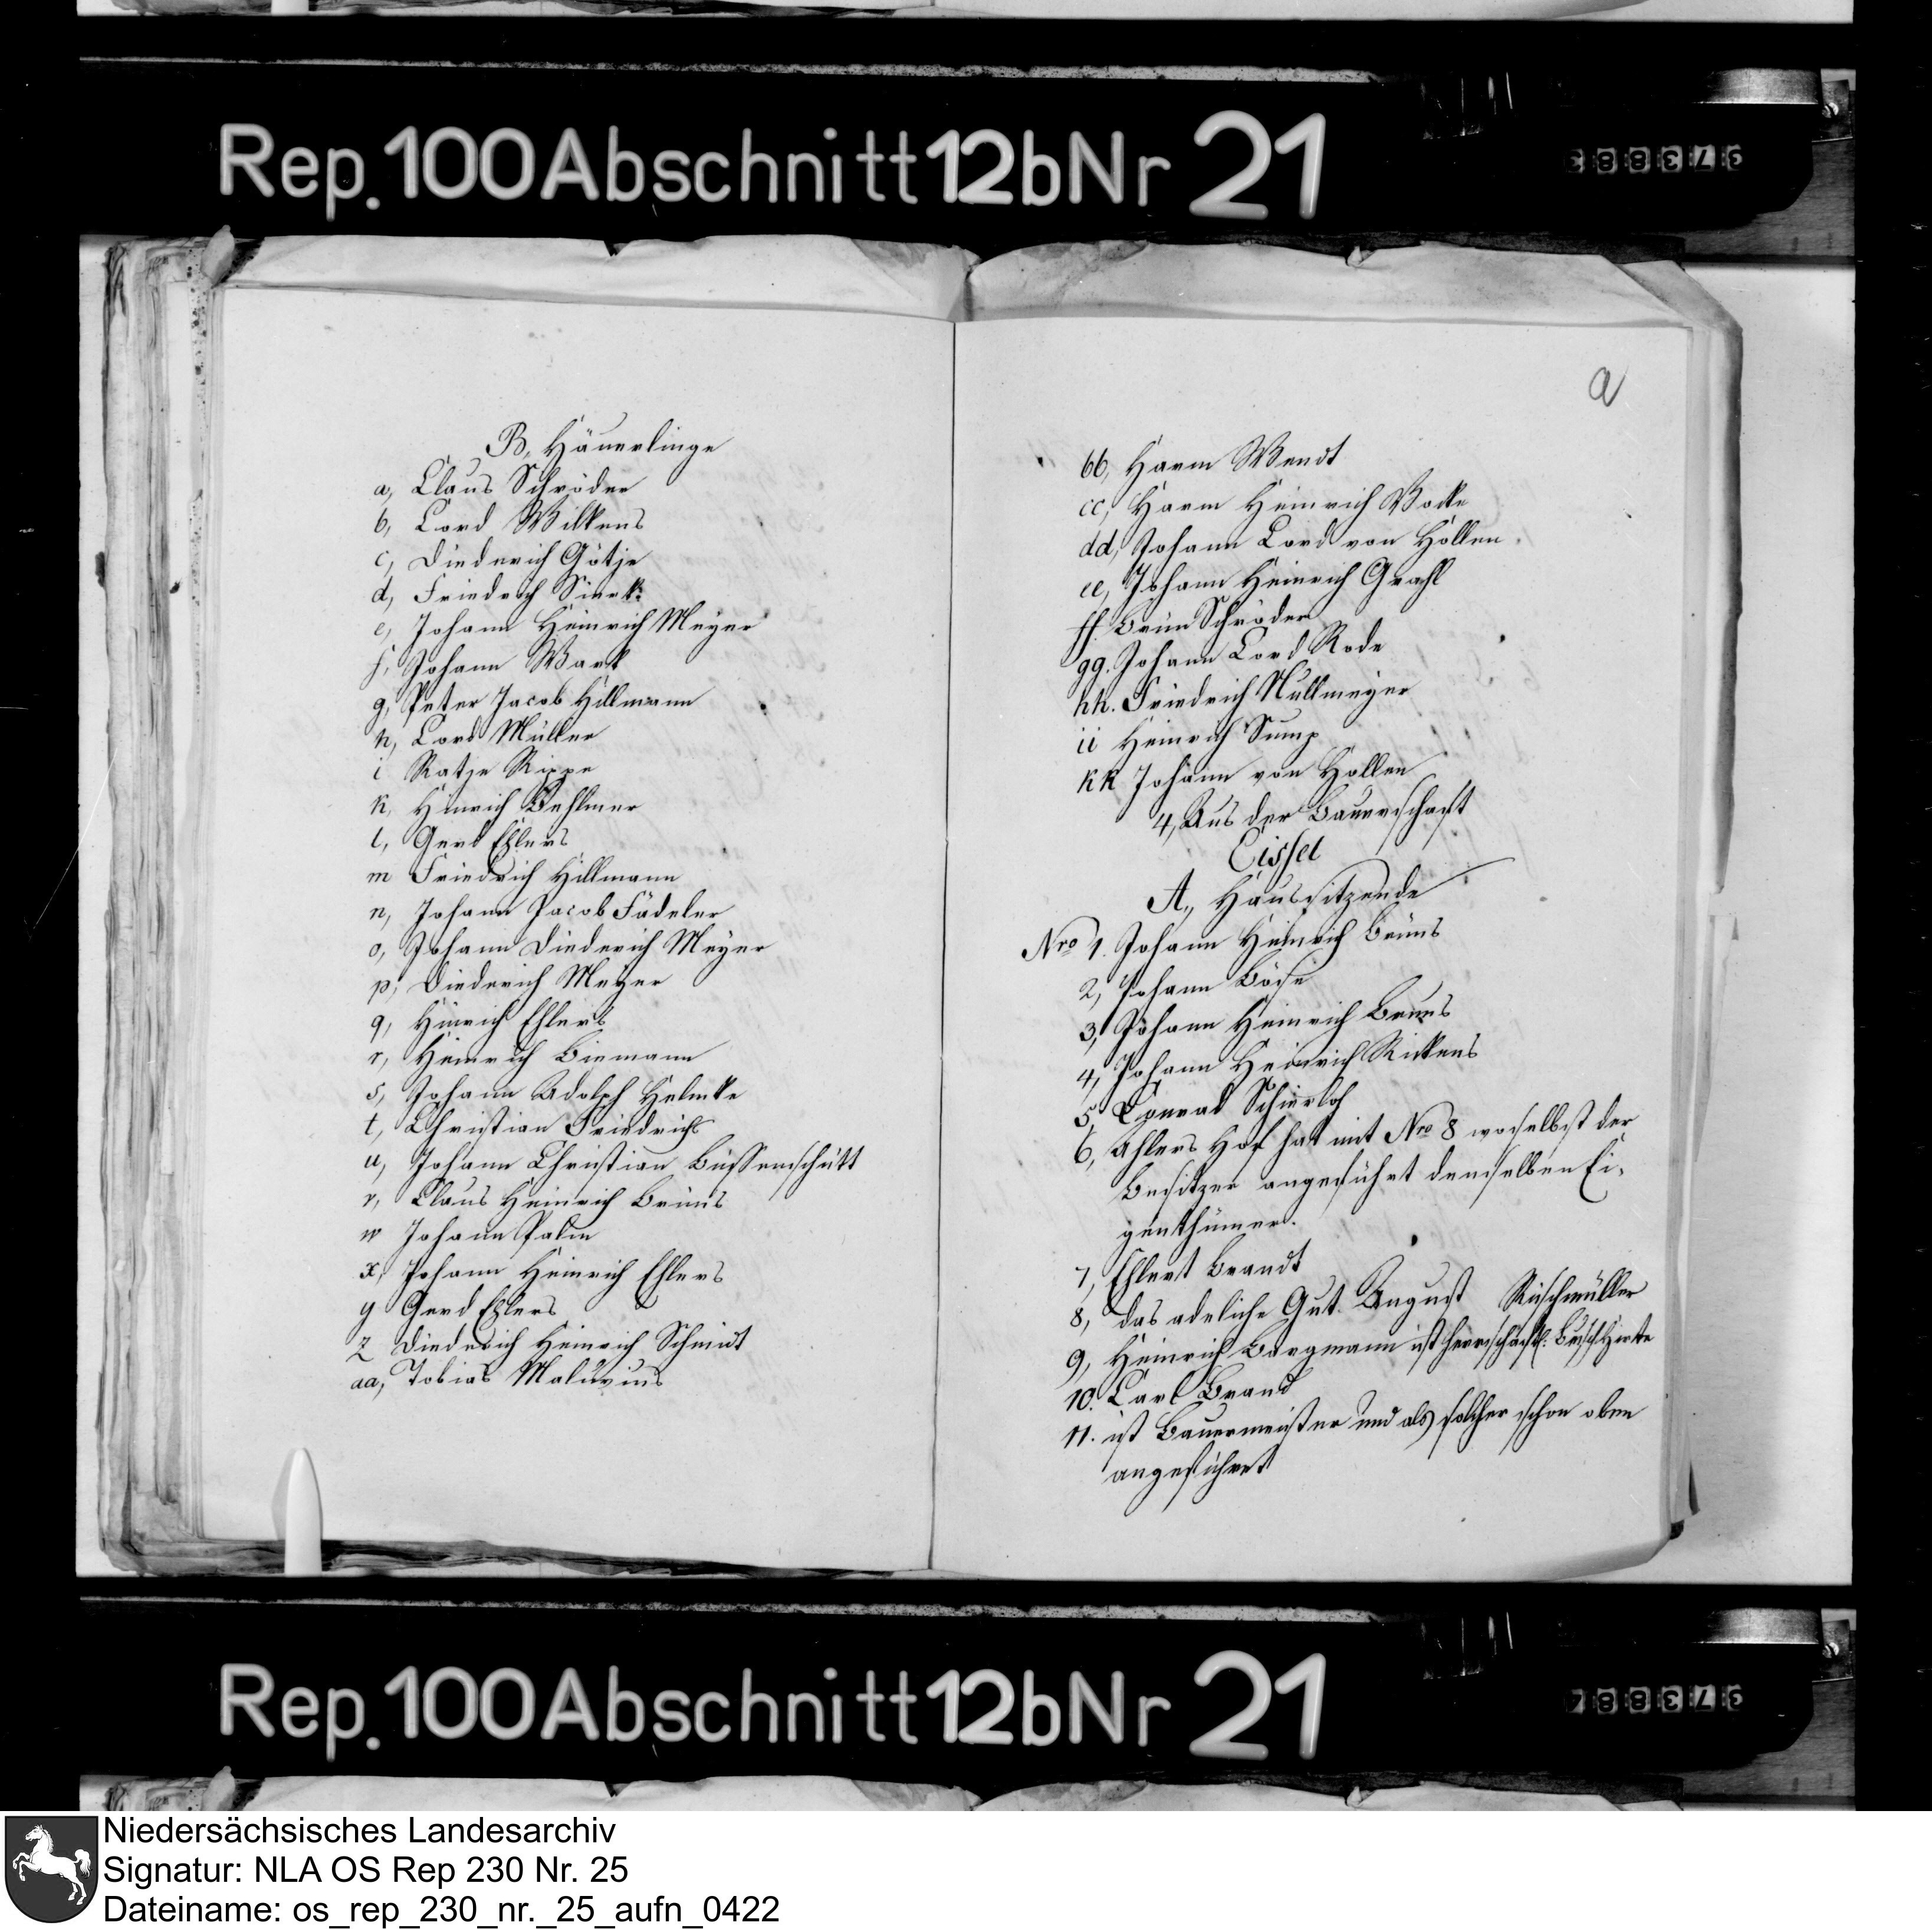 Rep. 100 Abschnitt 12b Nr 21
373883
B, Häuerlinge
a, Claus Schröder
b, Cord Wilkens
c, Diederich Götje
d, Friedrich Sink
e, Johann Heinrich Meyer
f, Johann Wark
g, Peter Jacob Hillmann
h, Cord Müller
i Ratje Rippe
k, Hinrich Dehlmer
l, Gerd Ehlers
m Friedrich Hillmann
n, Johann Jacob Fädeler
o, Johann Diederich Meyer
p, Diederich Meyer
q, Hinrich Ehlers
r, Heinrich Biemann
s, Johann Adolph Helmke
t, Christian Friedrichs
u, Johann Christian Büssenschütt
v, Claus Heinrich Brüns
w Johann Palm
x, Johann Heinrich Ehlers
y Gerd Ehlers
z Diederich Heinrich Schmidt
aa, Tobias
a
bb, Harm Wendt
cc, Harm Heinrich Bocke
dd, Johann Cord von Hollen
ee, Johann Heinrich Grahl
ff. Brün Schröder
gg. Johann Cord Rode
hh. Friedrich Nullmeyer
ii Heinrich Sump
kk Johann von Hollen
4, Aus der Bauerschaft
Eissel
A, Haussitzende
Nro 1. Johann Heinrich Brüns
2, Johann Böse
3, Johann Heinrich Bruns
4, Johann Heinrich Rickens
5, Conrad Schierloh
6, Ahlers Hof hat mit Nro 8 woselbst der
Besitzer angeführt denselben Ei-
genthümer.
7, Ehlert Brandt
8, das adeliche Gut August Rischmüller
9, Heinrich Bargmann ist herrschaftl.
10. Carl Brand
11. ist Bauermeister und als solcher schon oben
angeführet
Rep. 100 Abschnitt 12b Nr 21
373884
Niedersächsisches Landesarchiv
Signatur: NLA OS Rep 230 Nr. 25
Dateiname: os_rep_230_nr._25_aufn_0422